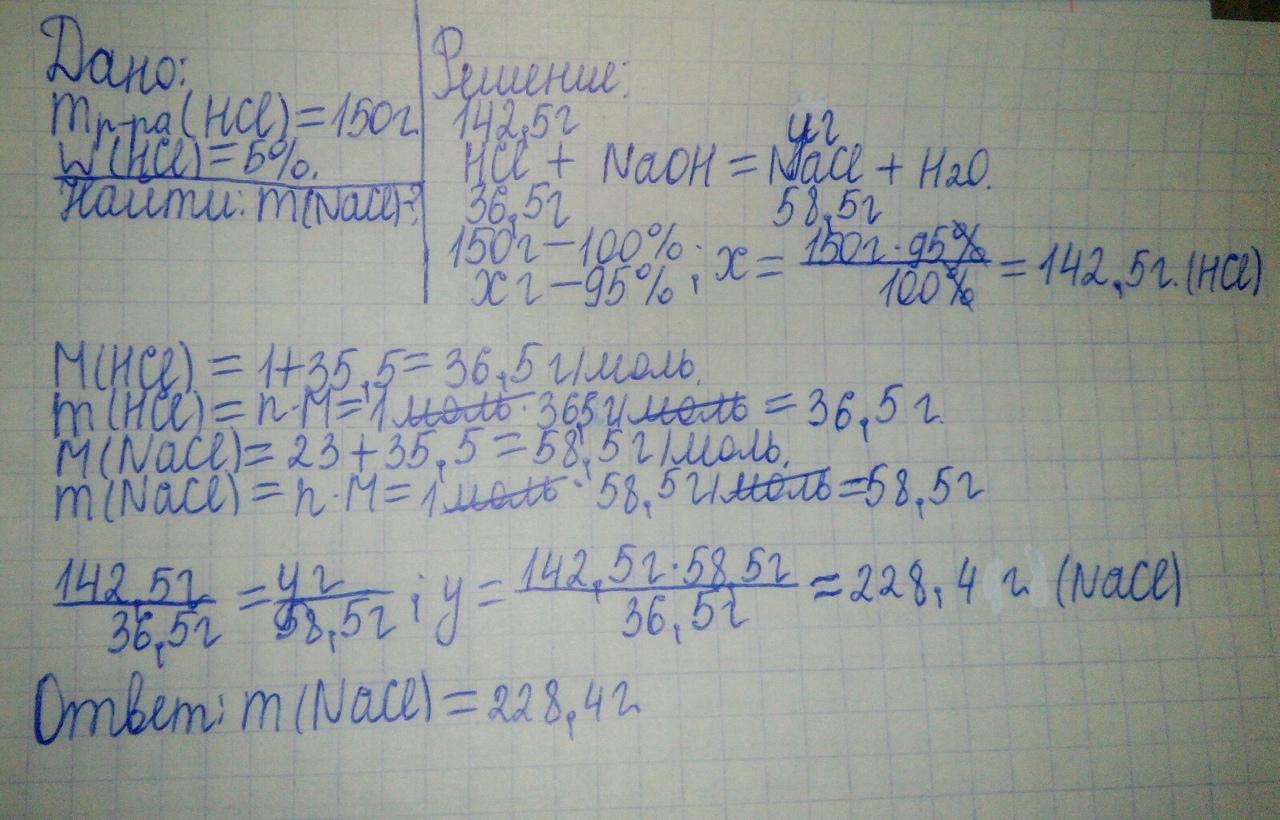 Дано:
mр-ра(HCl)=150г.
W(HCl)=5%.
Найти: m(NaCl)-?
Решение:
142,5г yг
HCl + NaOH = NaCl + H2O.
36,5г 58,5г
150г-100%
xг-95% ; x = 150г·95% / 100% = 142,5г.(HCl)
M(HCl) = 1+35,5= 36,5г/моль.
m(HCl)= n·M= 1моль·36,5г/моль = 36,5г.
M(NaCl)= 23+35,5=58,5г/моль.
m(NaCl) = n·M= 1моль· 58,5г/моль=58,5г
142,5г / 36,5г = yг / 58,5г ; y = 142,5г·58,5г / 36,5г = 228,4 г (NaCl)
Ответ: m(NaCl)=228,4г